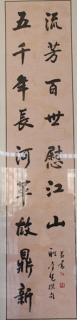 流芳百世慰江山
五千年長河革故鼎新